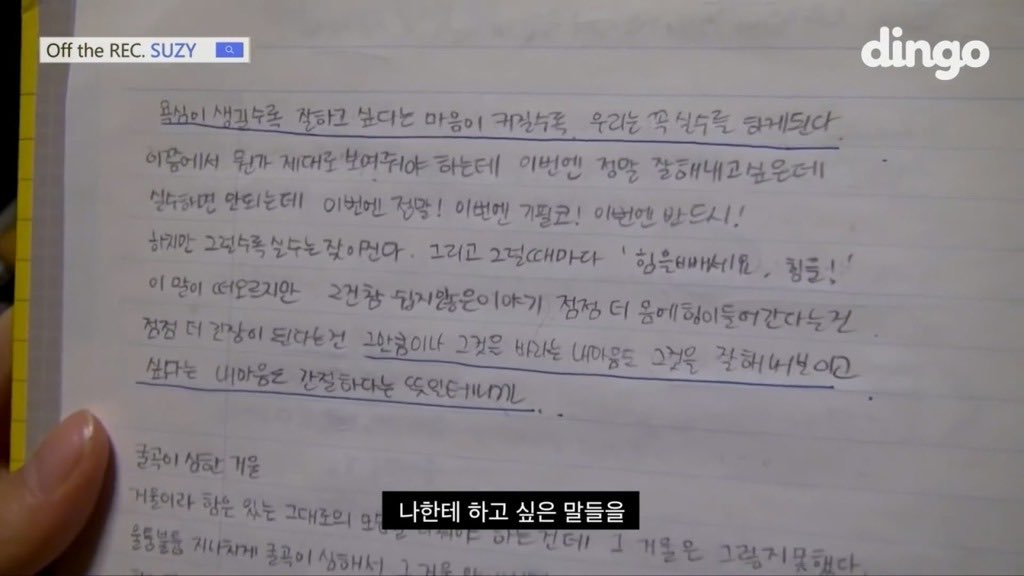 Off the REC. SUZY
dingo
욕심이 생길수록 잘하고 싶다는 마음이 커질수록, 우리는 꼭 실수를 하게된다.
이쯤에서 뭔가 제대로 보여줘야 하는데 이번엔 정말 잘해내고싶은데
실수하면 안되는데 이번엔 정말! 이번엔 기필코! 이번엔 반드시!
하지만 그럴수록 실수는 잦아진다. 그리고 그럴때마다 '힘을빼세요, 힘을!'
이 말이 떠오르지만 그건참 쉽지않은이야기 점점 더 몸에힘이들어간다는건
점점 더 긴장이 된다는건 그만큼이나 그것을 바라는 내마음도 그것을 잘해내보이고
싶다는 내마음도 간절하다는 뜻일테니까...
굴곡이 심한 거울
거울이라 함은 있는 그대로의 하는건데 그 거울은 그렇지못했다.
울퉁불퉁 지나치게 굴곡이 심해서 그 거울
나한테 하고 싶은 말들을